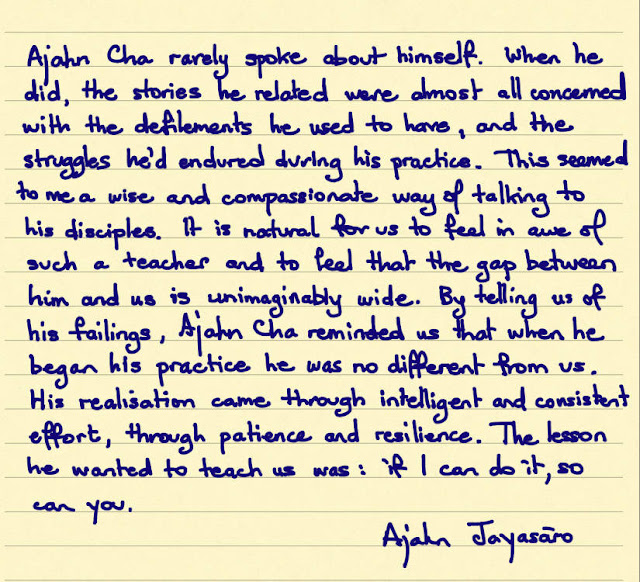 Ajahn Cha rarely spoke about himself. When he
did, the stories he related were almost all concerned
with the defilements he used to have, and the
struggles he'd endured during his practice. This seemed
to me a wise and compassionate way of talking to
his disciples. It is natural for us to feel in awe of
such a teacher and to feel that the gap between
him and us is unimaginably wide. By telling us of
his failings, Ajahn Cha reminded us that when he
began his practice he was no different from us.
His realisation came through intelligent and consistent
effort, through patience and resilience. The lesson
he wanted to teach us was: if I can do it, so
can you.
Ajahn Jayasāro